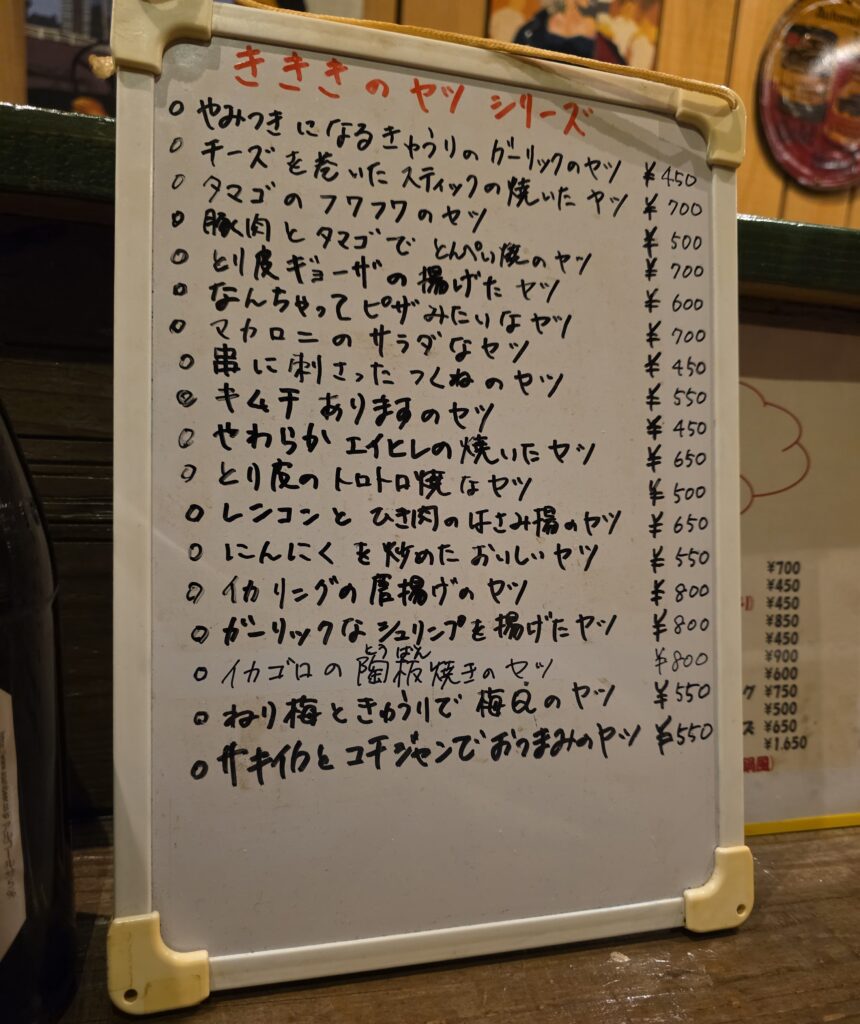 きききのヤツ シリーズ
○ やみつきになるきゅうりのガーリックのヤツ ¥450
○ チーズを巻いたスティックの焼いたヤツ ¥700
○ タマゴのフワフワのヤツ ¥500
○ 豚肉とタマゴでとんぺい焼のヤツ ¥700
○ とり皮ギョーザの揚げたヤツ ¥600
○ なんちゃってピザみたいなヤツ ¥700
○ マカロニのサラダなヤツ ¥450
○ 串に刺さったつくねのヤツ ¥550
○ キムチありますのヤツ ¥450
○ やわらかエイヒレの焼いたヤツ ¥650
○ とり皮のトロトロ焼なヤツ ¥500
○ レンコンとひき肉のはさみ揚のヤツ ¥650
○ にんにくを炒めたおいしいヤツ ¥550
○ イカリングの唐揚げのヤツ ¥800
○ ガーリックなシュリンプを揚げたヤツ ¥800
とうばん
○ イカゴロの陶板焼きのヤツ ¥800
○ ねり梅ときゅうりで梅Qのヤツ ¥550
○ サキイカとコチジャンでおつまみのヤツ ¥550
¥700
¥450
¥450
¥850
¥450
¥900
¥600
グ ¥750
¥500
ズ ¥650
¥1,650
鍋風)